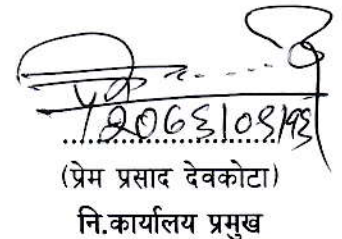 २०७६।०९।१६
(प्रेम प्रसाद देवकोटा)
नि.कार्यालय प्रमुख